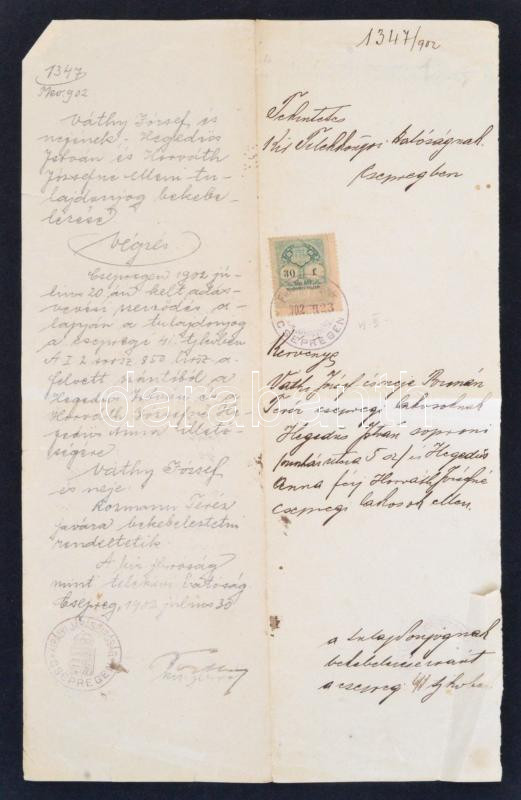 1347
902
Váthy József és
nejének Hegedüs
István és Horváth
Józsefné elleni tu-
lajdonjog bekebe-
lezése
Végzés
Csepregen 1902 jú-
lius 20 án kelt adás-
vevési szerződés a-
lapján a tulajdonjog
a csepregi 41 tjkvben
A I 2 sorsz 850 hrsz a.
felvett szántóból a
Hegedüs István és a
Horváth Józsefné He-
gedüs Anna illető-
ségére
Váthy József
és neje
Rozmann Teréz
javára bekebeleztetni
rendeltetik.
A kir. járásbíróság
mint telekkvi hatóság
Csepreg, 1902 július 30
CSEPREGEN
1347/902
Tekintetes
Kir Telekkönyvi Hatóságnak
Csepregben
30 f
902 23
CSEPREGEN
Kérvénye
Váthy József és neje Rozmán
Teréz csepregi lakosoknak
Hegedüs István soproni
utcza 5 sz) és Hegedüs
Anna férj Horváth Józsefné
csepregi lakosok ellen
a tulajdonjognak
bekebelezése iránt
a csepregi 41 tjkvben
darabanth